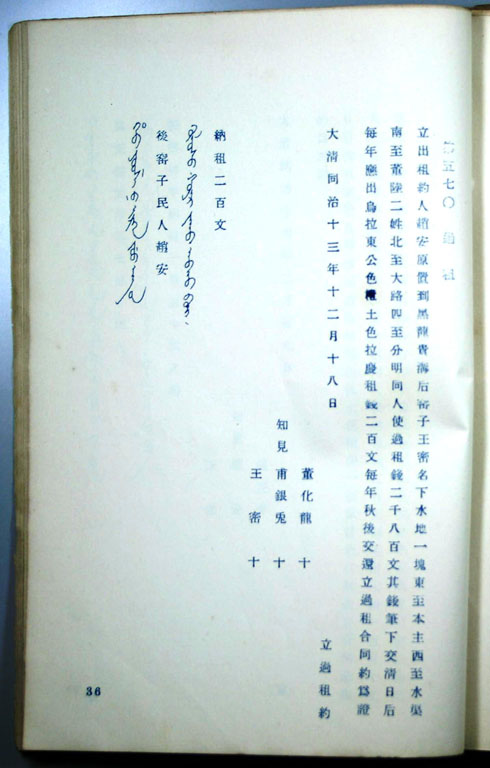 五七〇 過租
立出租約人趙安原置到黑龍貴海后窑子王密名下水地一塊東至本主西至水渠
南至董陸二姓北至大路四至分明同人使過租錢二千八百文其錢筆下交清日后
每年應出烏拉東公色欖土色拉慶租錢二百文每年秋後交還立過租合同約爲證
大清同治十三年十二月十八日
立過租約
董化龍 十
知見 甫銀兎 十
王密 十
納租二百文
後窑子民人趙安
36